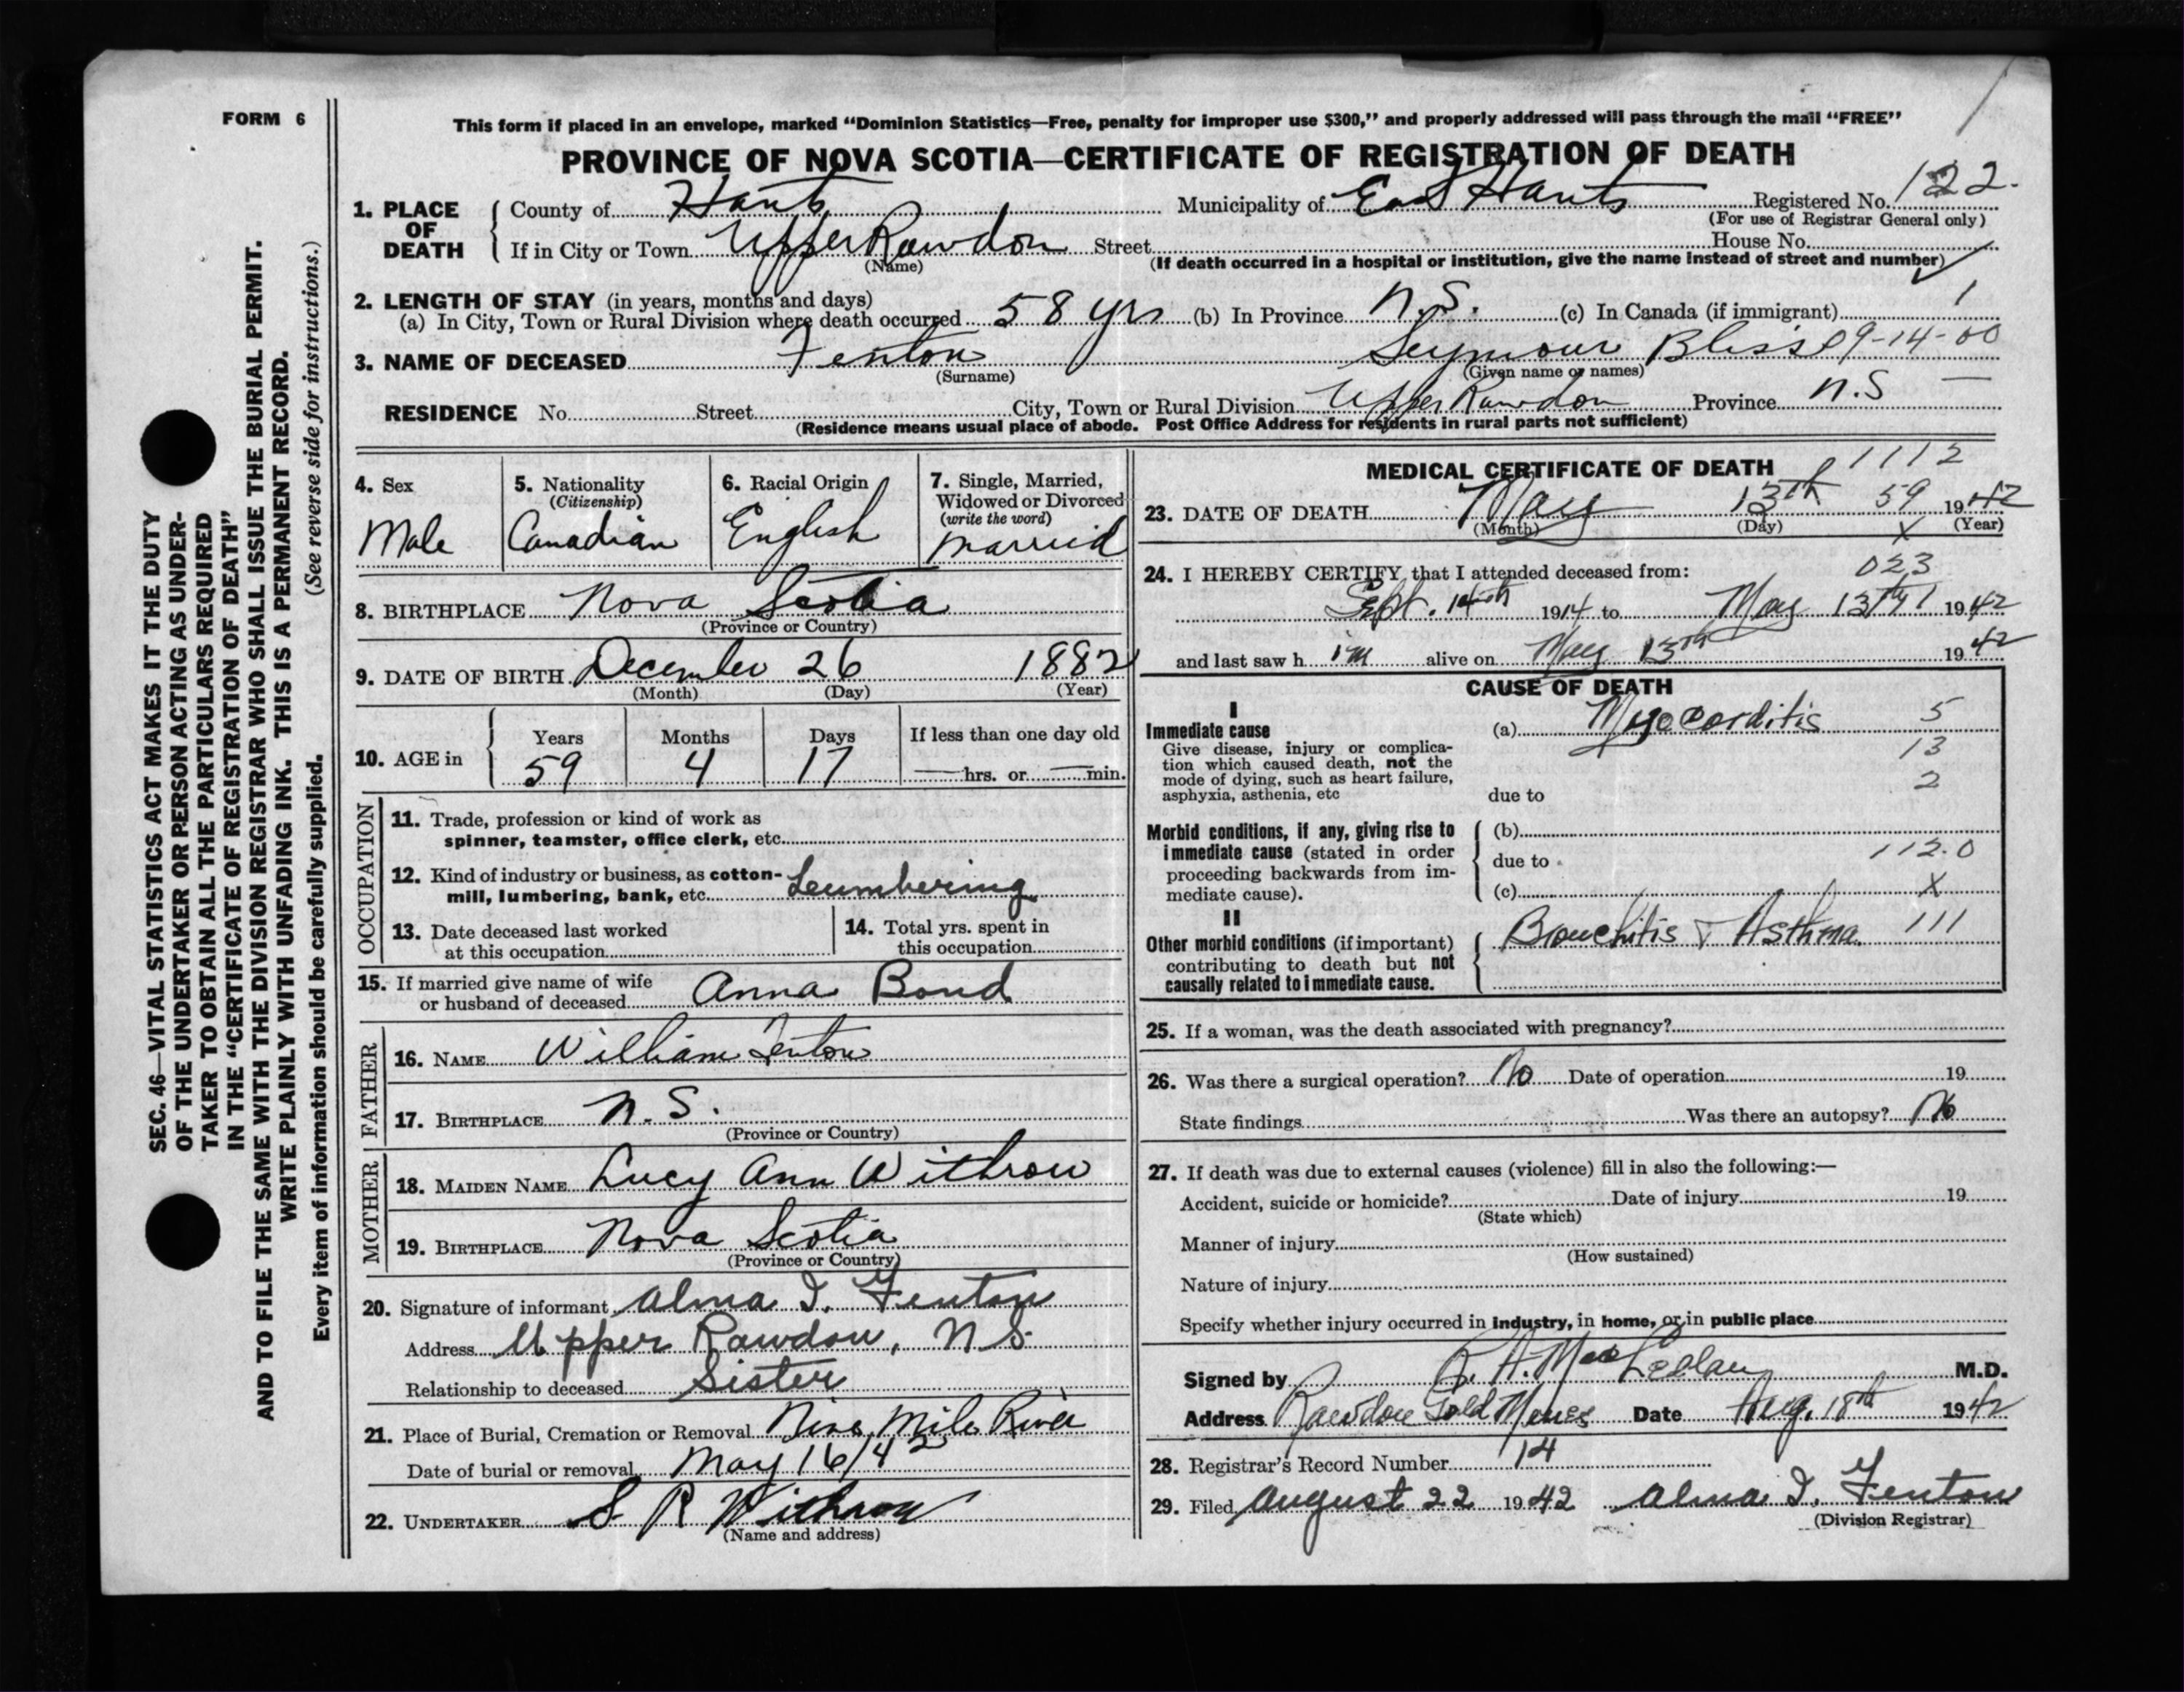 FORM 6
This form if placed in an envelope, marked “Dominion Statistics—Free, penalty for improper use $300,” and properly addressed will pass through the mail “FREE”
PROVINCE OF NOVA SCOTIA—CERTIFICATE OF REGISTRATION OF DEATH
1. PLACE OF DEATH { County of Hants Municipality of East Hants Registered No. 122.
(For use of Registrar General only)
If in City or Town Upper Rawdon Street House No.
(Name) (If death occurred in a hospital or institution, give the name instead of street and number)
2. LENGTH OF STAY (in years, months and days)
(a) In City, Town or Rural Division where death occurred 58 yrs (b) In Province N.S. (c) In Canada (if immigrant) 1
3. NAME OF DECEASED Fenton Seymour Bliss 09-14-00
(Surname) (Given name or names)
RESIDENCE No. Street City, Town or Rural Division Upper Rawdon Province N.S —
(Residence means usual place of abode. Post Office Address for residents in rural parts not sufficient)
4. Sex Male
5. Nationality (Citizenship) Canadian
6. Racial Origin English
7. Single, Married, Widowed or Divorced (write the word) Married
8. BIRTHPLACE Nova Scotia
(Province or Country)
9. DATE OF BIRTH December 26 1882
(Month) (Day) (Year)
10. AGE in { Years 59 Months 4 Days 17 If less than one day old — hrs. or — min.
OCCUPATION
11. Trade, profession or kind of work as
spinner, teamster, office clerk, etc.
12. Kind of industry or business, as cotton-
mill, lumbering, bank, etc. Leumbering
13. Date deceased last worked
at this occupation
14. Total yrs. spent in
this occupation
15. If married give name of wife
or husband of deceased Anna Bond
FATHER
16. NAME William Fenton
17. BIRTHPLACE N.S.
(Province or Country)
MOTHER
18. MAIDEN NAME Lucy Ann Withrow
19. BIRTHPLACE Nova Scotia
(Province or Country)
20. Signature of informant Alma I. Fenton
Address Upper Rawdon, N.S.
Relationship to deceased Sister
21. Place of Burial, Cremation or Removal Nine Mile River
Date of burial or removal May 16/42
22. UNDERTAKER S R Withrow
(Name and address)
MEDICAL CERTIFICATE OF DEATH 1112
23. DATE OF DEATH May 13th 59 1942
(Month) (Day) X (Year)
24. I HEREBY CERTIFY that I attended deceased from: 023
Sept. 14th 1914 to May 13th 1 1942
and last saw h im alive on May 13th 1942
CAUSE OF DEATH
I
Immediate cause (a) Myocarditis 5
Give disease, injury or complica-
tion which caused death, not the 13
mode of dying, such as heart failure, 2
asphyxia, asthenia, etc due to
Morbid conditions, if any, giving rise to (b)
immediate cause (stated in order due to 112.0
proceeding backwards from im-
mediate cause). (c) X
II
Other morbid conditions (if important) Bronchitis & Asthma 111
contributing to death but not
causally related to immediate cause.
25. If a woman, was the death associated with pregnancy?
26. Was there a surgical operation? No Date of operation 19
State findings Was there an autopsy? No
27. If death was due to external causes (violence) fill in also the following:—
Accident, suicide or homicide? Date of injury 19
(State which)
Manner of injury
(How sustained)
Nature of injury
Specify whether injury occurred in industry, in home, or in public place
Signed by A. MacLellan M.D.
Address Rawdon Gold Mines Date Aug. 18th 1942
28. Registrar's Record Number 14
29. Filed August 22 1942 Alma I. Fenton
(Division Registrar)
SEC. 46—VITAL STATISTICS ACT MAKES IT THE DUTY
OF THE UNDERTAKER OR PERSON ACTING AS UNDER-
TAKER TO OBTAIN ALL THE PARTICULARS REQUIRED
IN THE “CERTIFICATE OF REGISTRATION OF DEATH”
AND TO FILE THE SAME WITH THE DIVISION REGISTRAR WHO SHALL ISSUE THE BURIAL PERMIT.
WRITE PLAINLY WITH UNFADING INK. THIS IS A PERMANENT RECORD.
Every item of information should be carefully supplied. (See reverse side for instructions.)